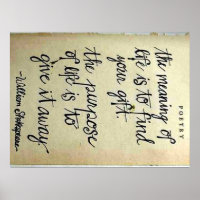 POETRY
the meaning of
life is to find
your gift
the purpose
of life is to
give it away
-William Shakespeare